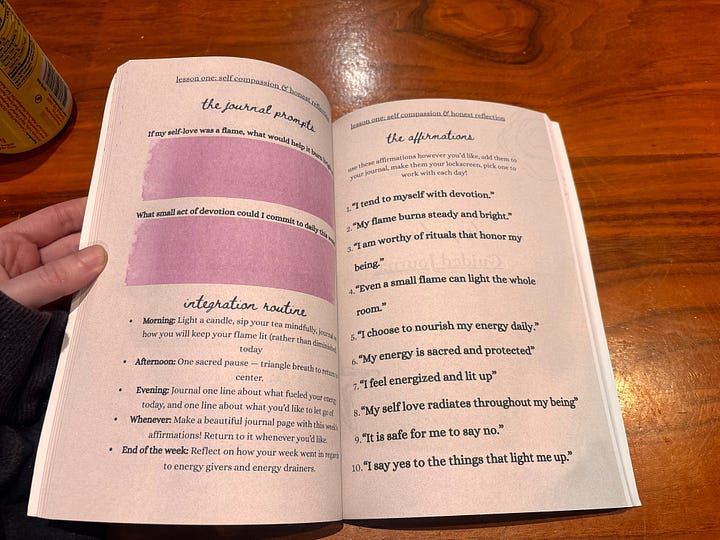 lesson one: self compassion & honest reflection
the journal prompts
If my self-love was a flame, what would help it burn
What small act of devotion could I commit to daily this
integration routine
• Morning: Light a candle, sip your tea mindfully, journal
how you will keep your flame lit (rather than diminished
today
• Afternoon: One sacred pause — triangle breath to return
center.
• Evening: Journal one line about what fueled your energy
today, and one line about what you'd like to let go of.
• Whenever: Make a beautiful journal page with this week's
affirmations! Return to it whenever you'd like.
• End of the week: Reflect on how your week went in regards
to energy givers and energy drainers.
lesson one: self compassion & honest reflection
the affirmations
use these affirmations however you'd like, add them to
your journal, make them your lockscreen, pick one to
work with each day!
1. “I tend to myself with devotion.”
2. “My flame burns steady and bright.”
3. “I am worthy of rituals that honor my
being.”
4. “Even a small flame can light the whole
room.”
5. “I choose to nourish my energy daily.”
6. “My energy is sacred and protected”
7. “I feel energized and lit up”
8. “My self love radiates throughout my being”
9. “It is safe for me to say no.”
10. “I say yes to the things that light me up.”